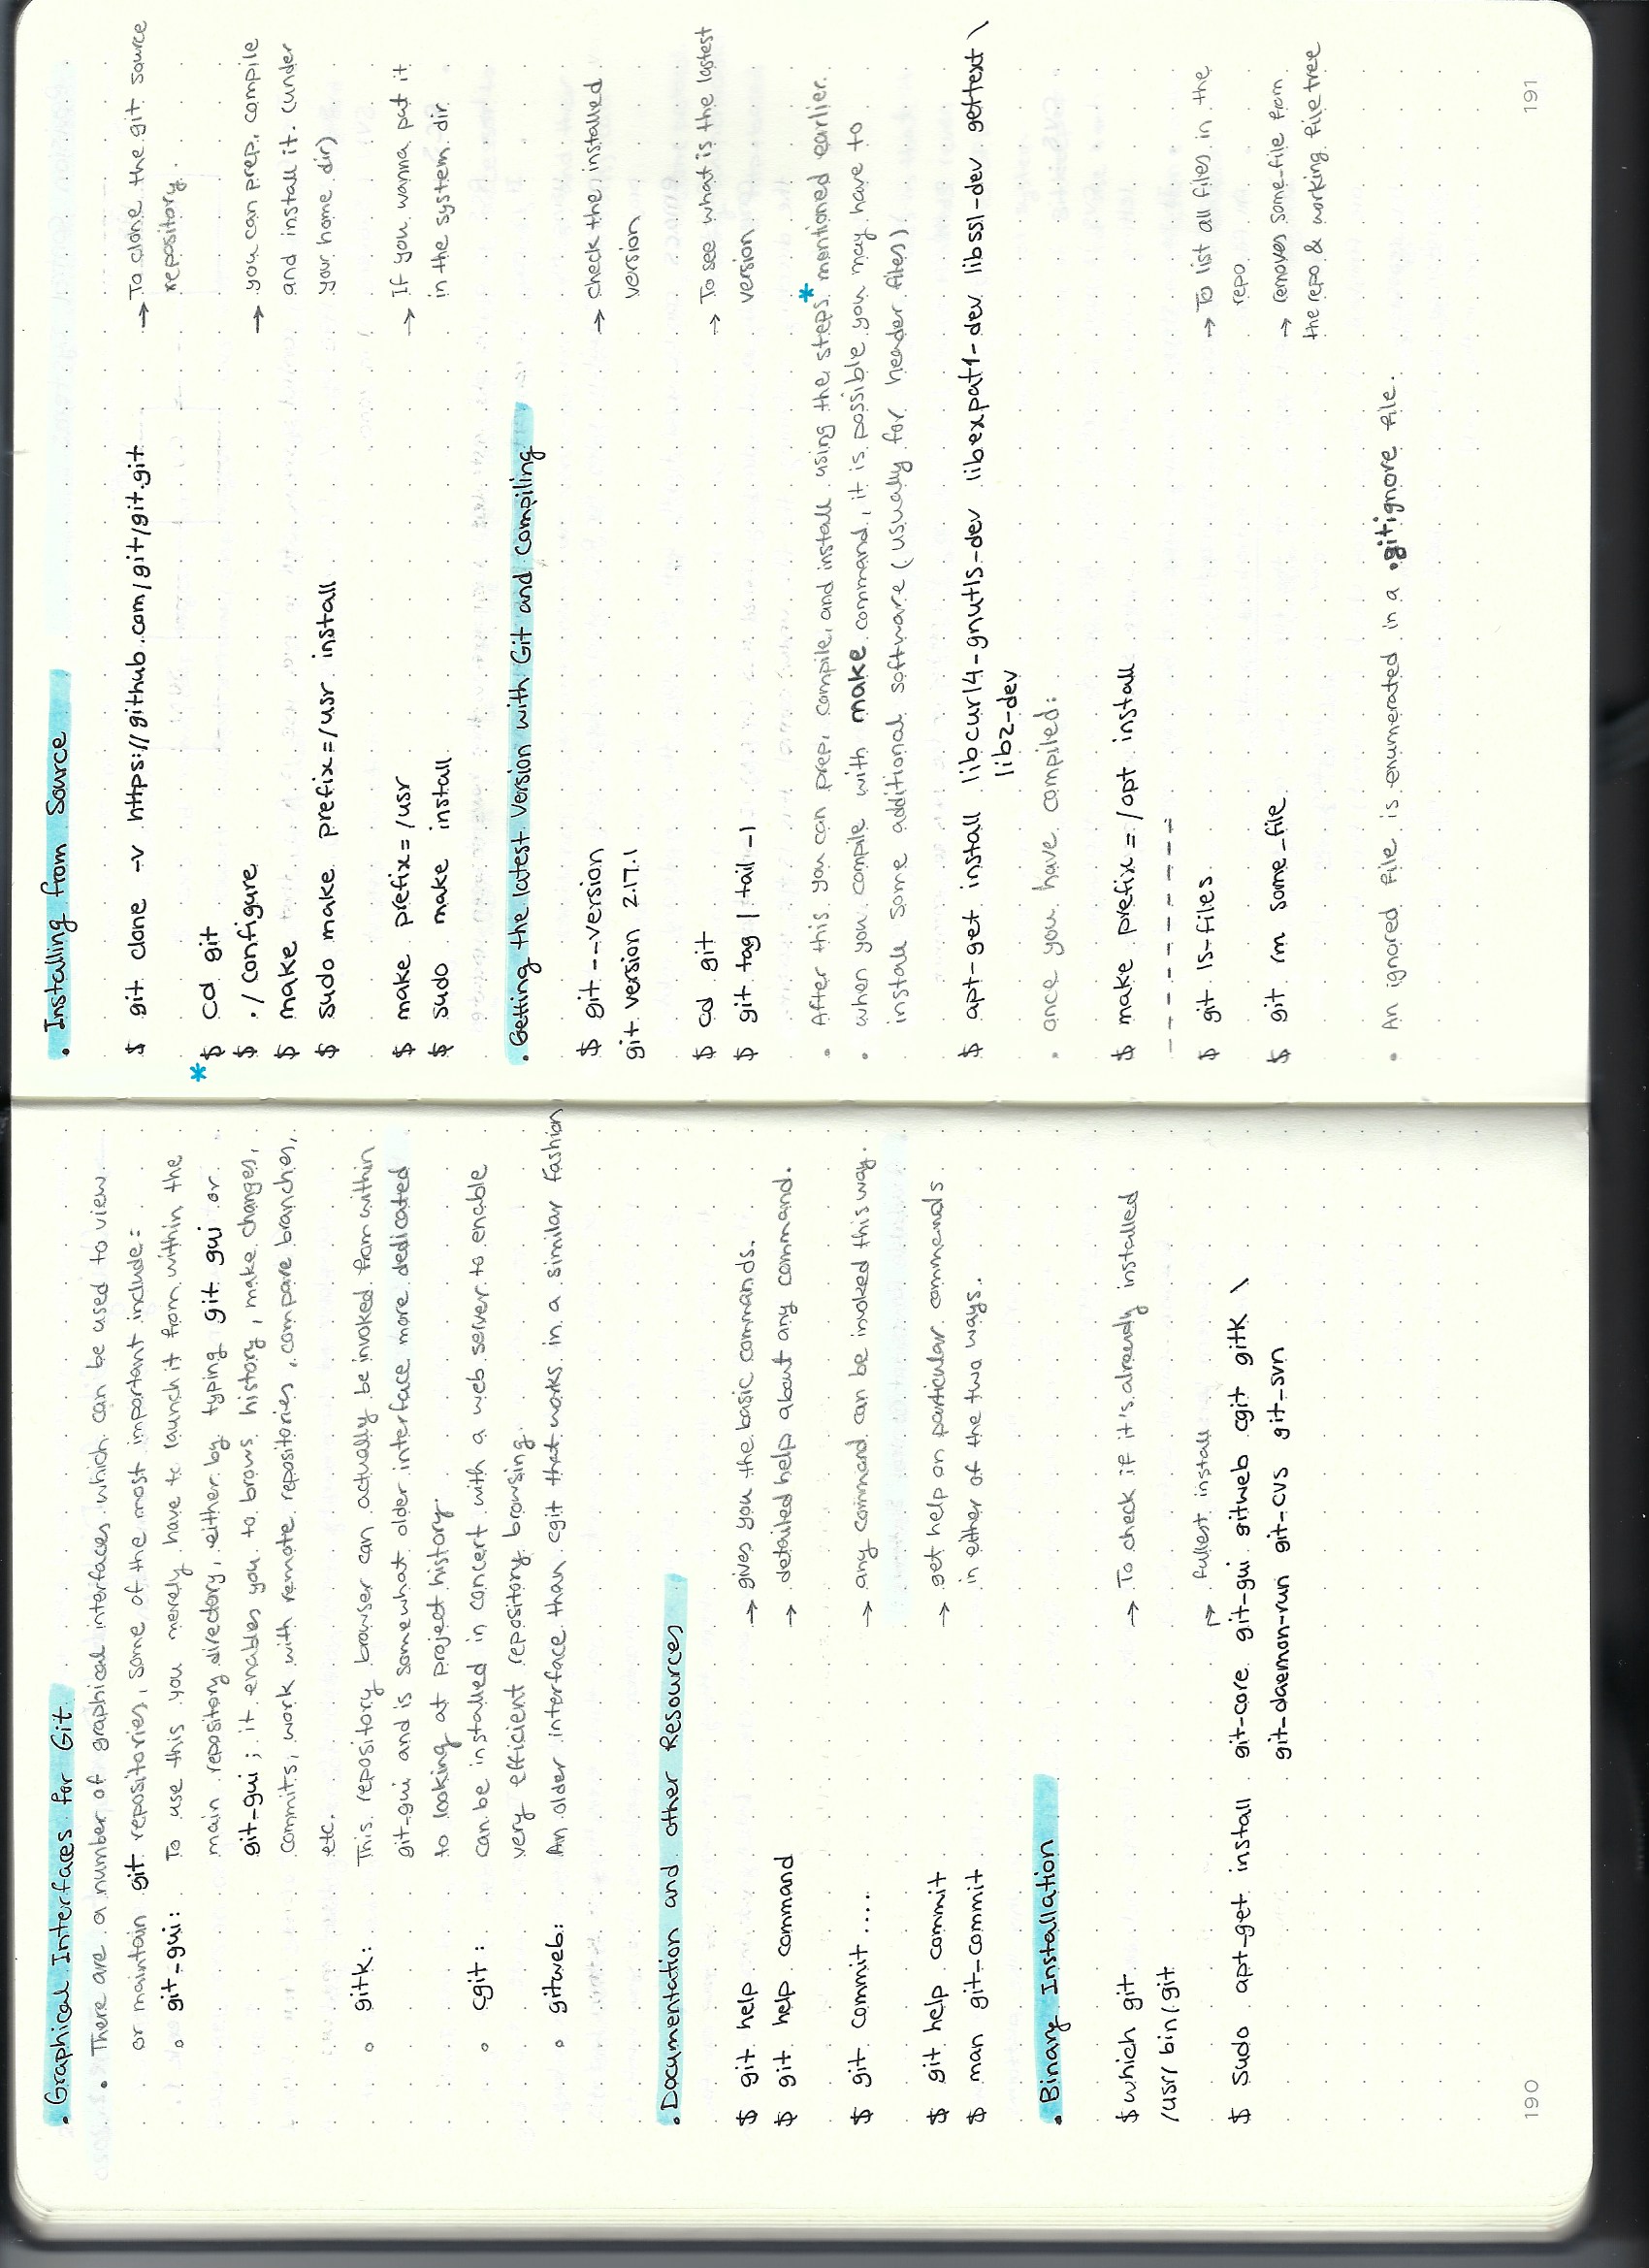 . Graphical Interfaces for Git
. There are a number of graphical interfaces which can be used to view
or maintain git repositories, some of the most important include:
o git-gui: To use this you merely have to launch it from within the
main repository directory, either by typing git gui or
git-gui ; it enables you to brows history, make changes,
commits, work with remote repositories, compare branches,
etc.
o gitk: This repository browser can actually be invoked from within
git-gui and is somewhat older interface more dedicated
to looking at project history.
o cgit: can be installed in concert with a web server to enable
very efficient repository browsing.
o gitweb: An older interface than cgit that works in a similar fashion
. Documentation and other Resources
$ git help → gives you the basic commands.
$ git help command → detailed help about any command.
$ git commit .... → any command can be invoked this way.
$ git help commit → get help on particular commends
$ man git-commit in either of the two ways.
. Binary Installation
$ which git → To check if it's already installed
/usr/bin/git
→ fullest install
$ sudo apt-get install git-core git-gui gitweb cgit gitk \
git-daemon-run git-cvs git-svn
190
. Installing from Source
$ git clone -v https://github.com/git/git.git → To clone the git source
repository.
*$ cd git
$ ./configure → you can prep, compile
$ make and install it. (under
$ sudo make prefix=/usr install your home dir)
$ make prefix=/usr → If you wanna put it
$ sudo make install in the system dir
. Getting the latest Version with Git and Compiling
$ git --version → check the installed
git version 2.17.1 version
$ cd git → To see what is the lastest
$ git tag | tail -1 version
. After this you can prep, compile, and install using the steps* mentioned earlier.
. when you compile with make command, it is possible you may have to
install some additional software (usually for header files)
$ apt-get install libcurl4-gnutls-dev libexpat1-dev libssl-dev gettext \
libz-dev
. once you have compiled:
$ make prefix=/opt install
-----------
$ git ls-files → To list all files in the
repo
$ git rm some_file → removes some_file from
the repo & working file tree
. An ignored file is enumerated in a .gitignore file.
191